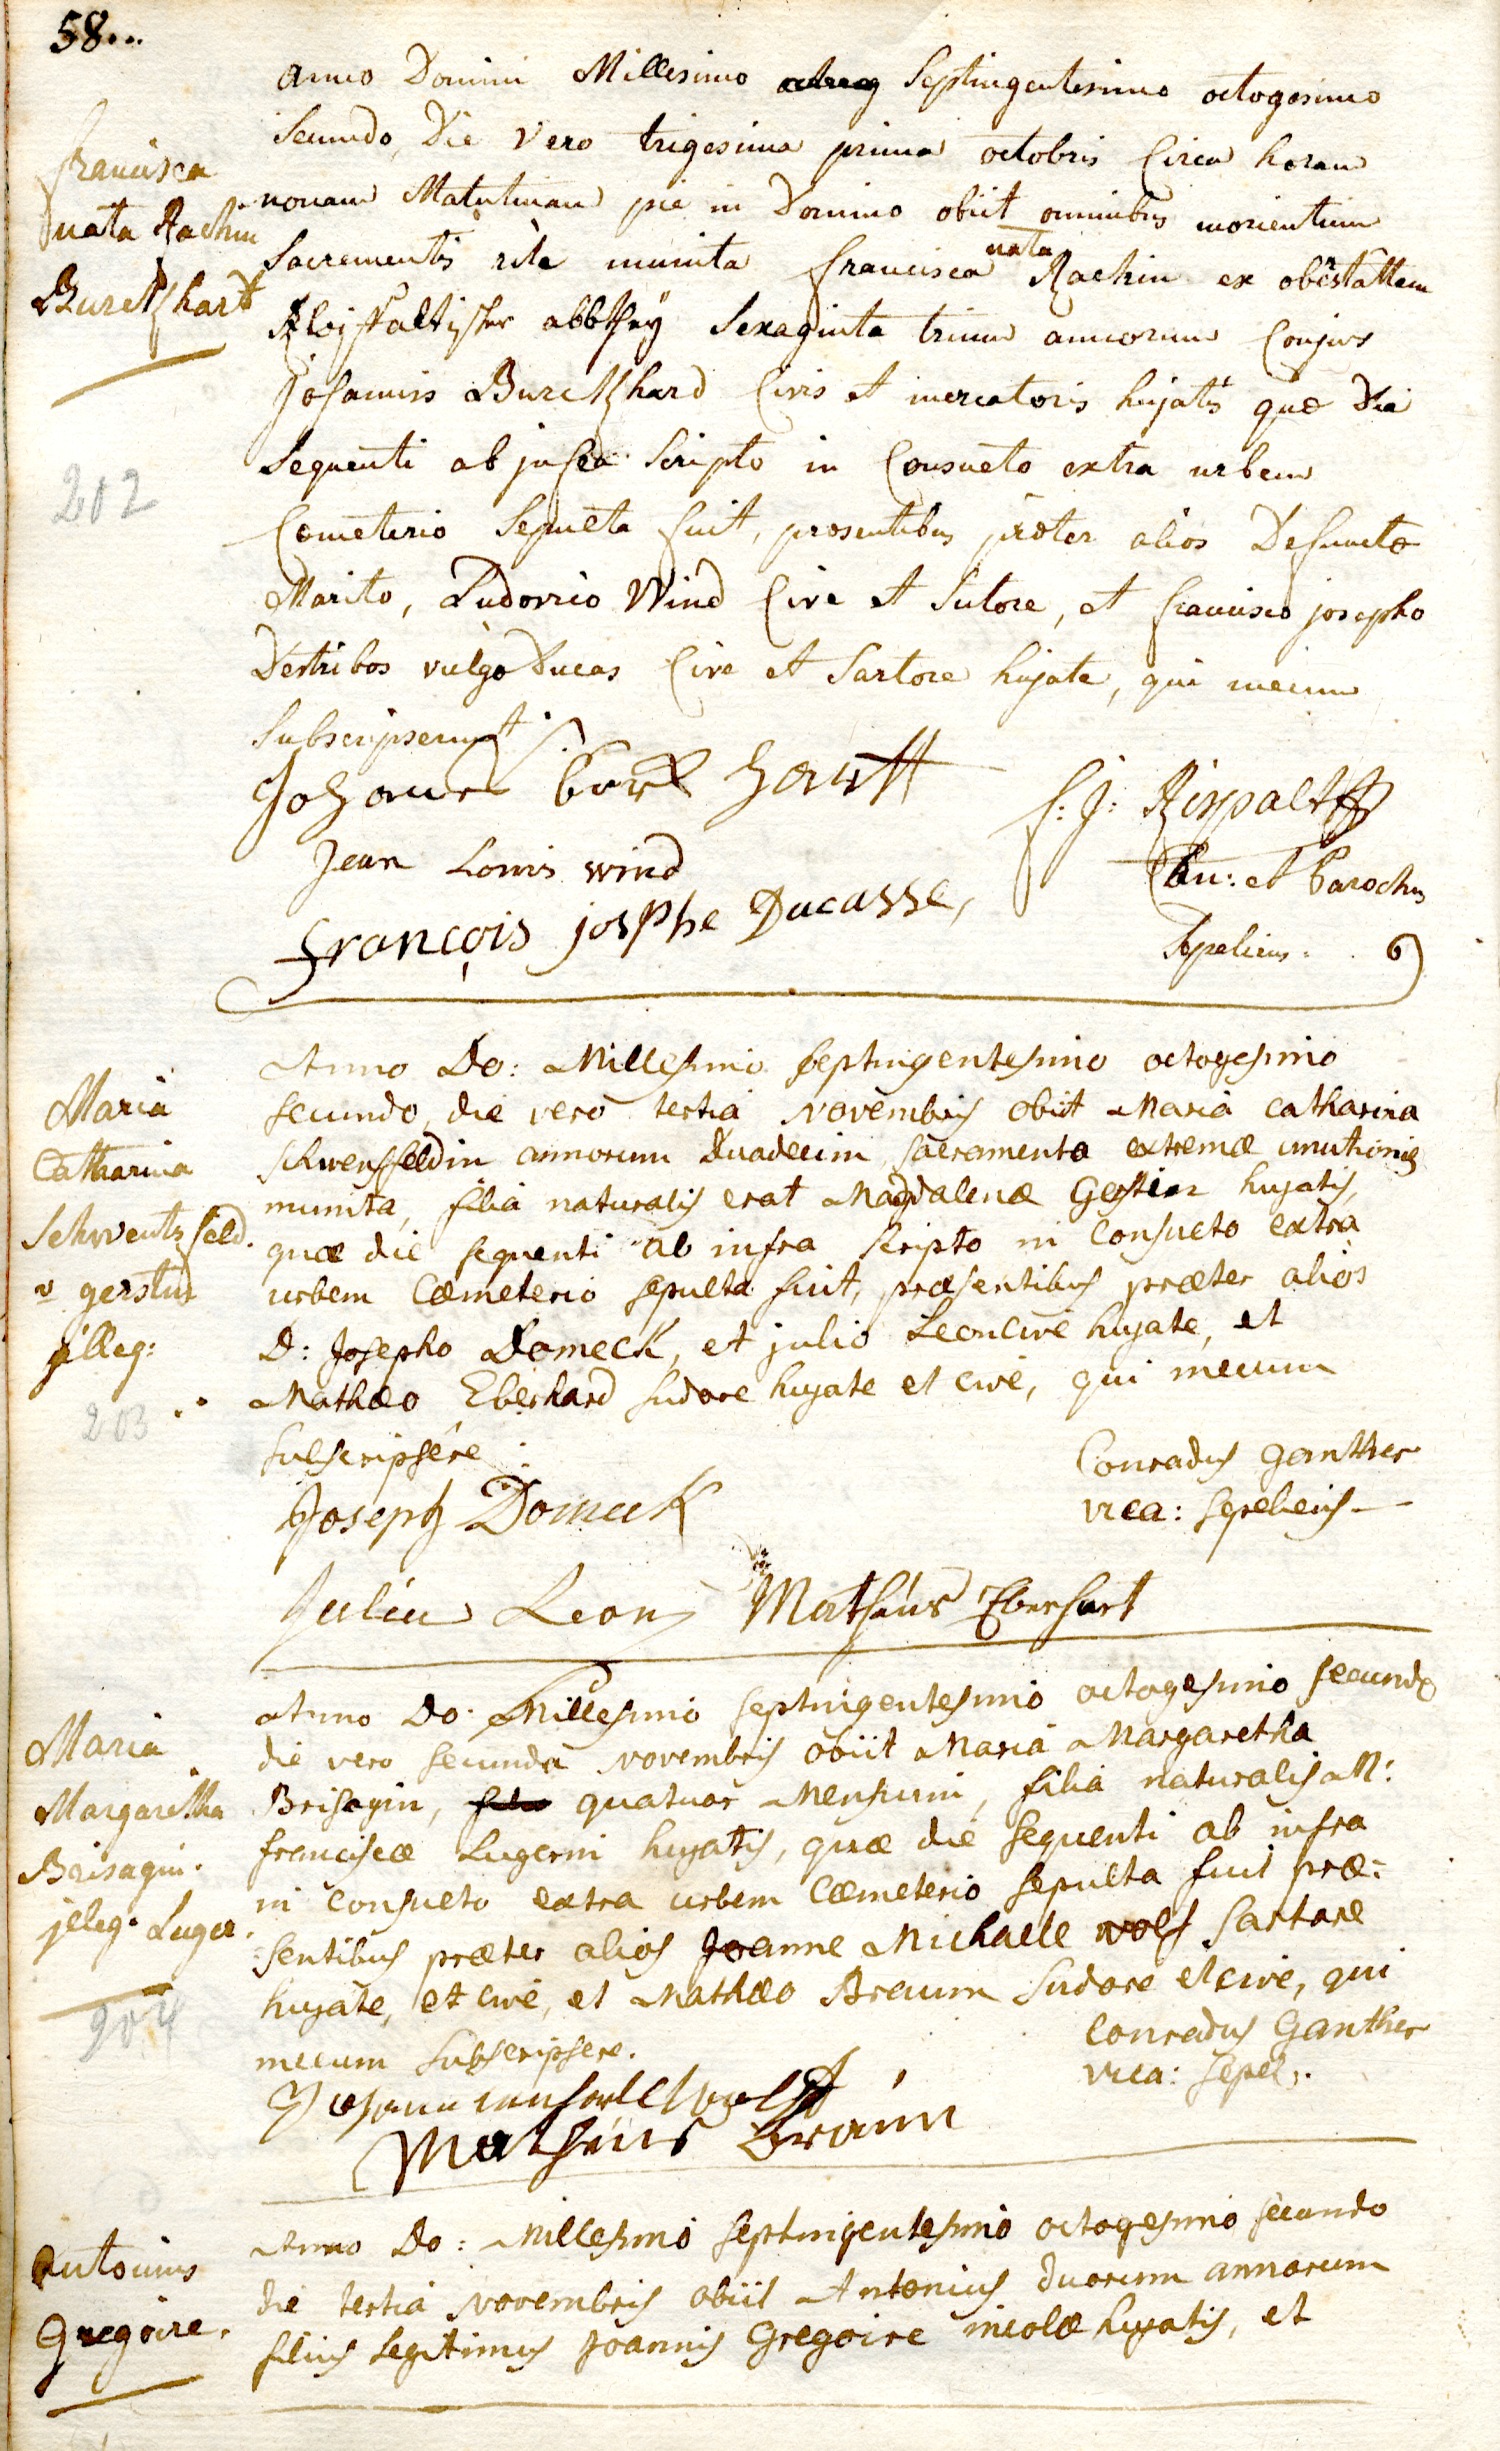 58...
Francisca
nata Rachin
Burckhart
202
anno Domini Millesimo Septingentesimo octogesimo
secundo, Die vero trigesima prima octobris Circa horam
nonam Matutinam pie in Domino obiit omnibus morientium
Sacramentis rite munita francisca nata Rachin ex
abbtheÿ Sexaginta trium annorum Conjux
Johannis Burckhard Civis et mercatoris hujatis quæ Die
Sequenti ab infra Scripto in Consueto extra urbem
Cœmeterio Sepulta fuit, præsentibus præter alios Defunctæ
Marito, Ludovico Wind Cive et Sutore, et francisco josepho
Destribos vulgo Ducas Cive et Sartore hujate, qui mecum
Subscripserunt.
Johannes burckhartt
Jean Louis wind
françois josPhe Ducasse,
f: J: Rispalt
Can: et Parochus
Sepeliens.
Maria
Catharina
Schwentzfeld.
v gerstin
illeg:
203
Anno Do: Millesimo septingentesimo octogesimo
secundo, die vero tertia novembris obiit Maria Catharina
Schwensfeldin annorum Duodecim sacramento extremæ unctionis
munita, filia naturalis erat Magdalenæ Gerstin hujatis,
quæ die sequenti ab infra scripto in Consueto extra
urbem Cœmeterio sepulta fuit, præsentibus præter alios
D: Josepho Domeck, et julio Leon cive hujate, et
Mathæo Eberhard sudore hujate et cive, qui mecum
subscripsêre:
Conradus Ganther
vica: sepeliens
Joseph Domeck
Juliu Leon Mathäus Eberhart
Maria
Margaritha
Brisagin.
jlleg. Luger.
204
Anno Do: Millesimo septingentesimo octogesimo secundo
die vero secunda novembris obiit Maria Margaretha
Brisagin, quatuor Mensium, filia naturalis M:
franciscæ Lugerin hujatis, quæ die sequenti ab infra
in Consueto extra urbem Cœmeterio sepulta fuit præ=
=sentibus præter alios Joanne Michaele wolf Sartore
hujate, et cive, et Mathæo Braum sudore et cive, qui
mecum subscripsere.
Conradus Ganther
vica: sepel:.
Johann michaell wolff
Mathäus Braun
Antonius
Gregoire.
Anno Do: Millesimo septingentesimo octogesimo secundo
die tertia novembris obiit Antonius duorum annorum
filius legitimus Joannis Gregoire incolæ hujatis, et